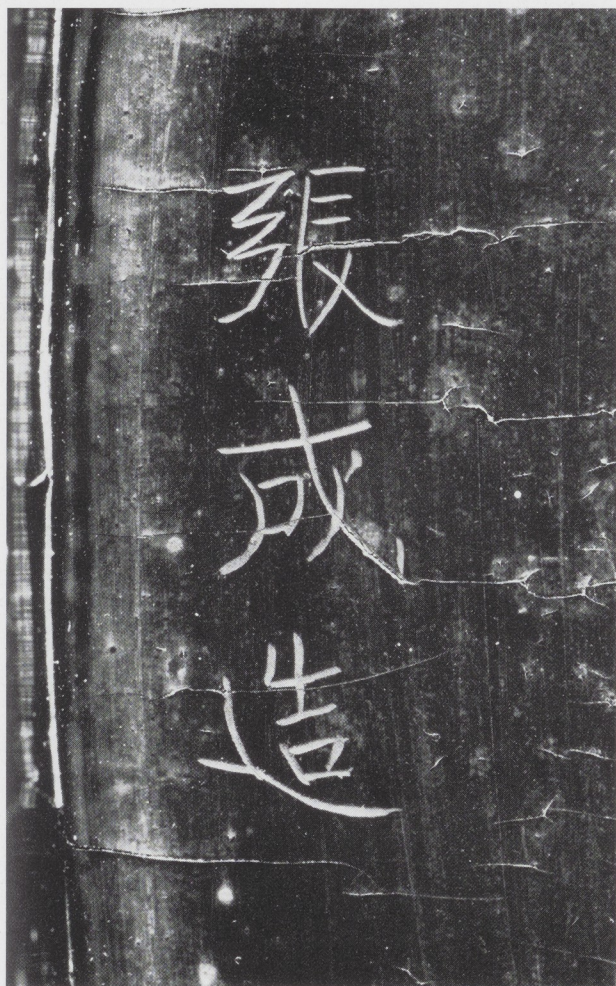 張成造